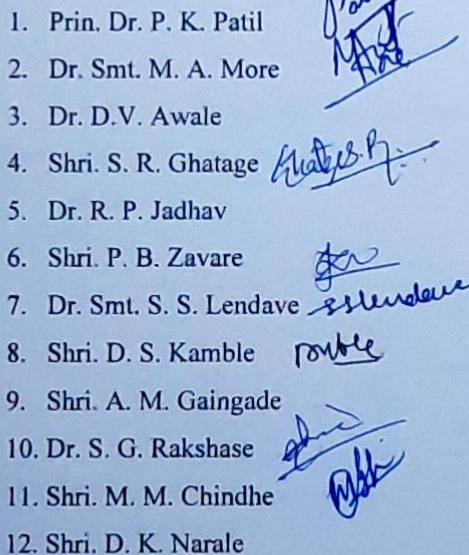 1. Prin. Dr. P. K. Patil
2. Dr. Smt. M. A. More
3. Dr. D.V. Awale
4. Shri. S. R. Ghatage
5. Dr. R. P. Jadhav
6. Shri. P. B. Zavare
7. Dr. Smt. S. S. Lendave sslendave
8. Shri. D. S. Kamble
9. Shri. A. M. Gaingade
10. Dr. S. G. Rakshase
11. Shri. M. M. Chindhe
12. Shri. D. K. Narale